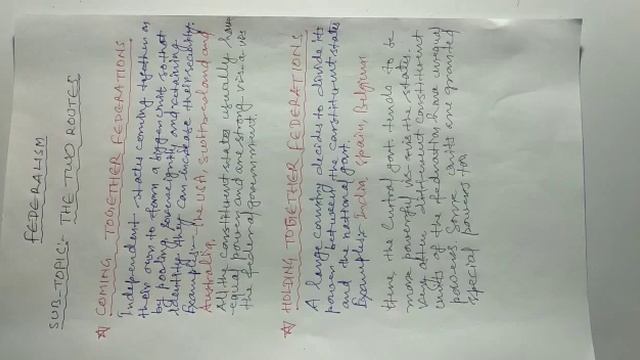 FEDERALISM
SUB-TOPIC:- THE TWO ROUTES
COMING TOGETHER FEDERATIONS
Independent states coming together on
their own to form a bigger unit so that
by pooling sovereignty and retaining
identity they can increase their security.
Examples:- the USA, Switzerland and
Australia.
All the constituent states usually have
equal power and are strong vis-a-vis
the federal government.
HOLDING TOGETHER FEDERATIONS
A large country decides to divide its
power between the constituent states
and the national govt.
Examples:- India, Spain, Belgium
there, the Central govt tends to be
more powerful vis-a-vis the states.
very often different constituent
units of the federation have unequal
powers. Some units are granted
special powers